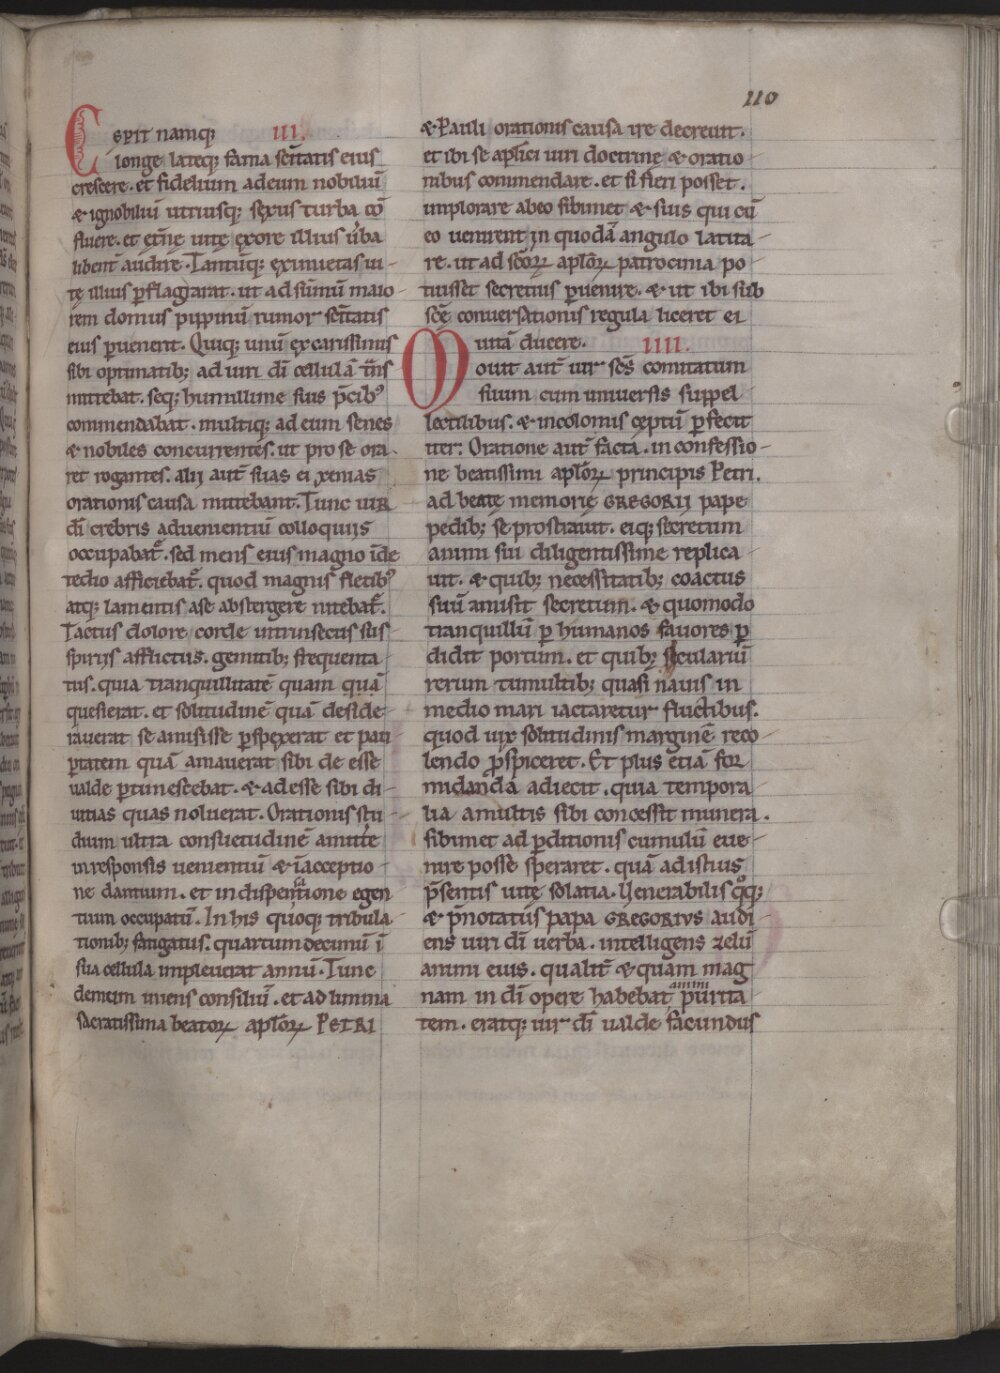 110
Cepit namq; III.
longe lateq; fama scītatis eius
crescere. et fidelium ad eum nobiliū
& ignobiliū utriusq; sexus turba cō
fluere. et etn̄e uitę exore illius u̾ba
libent̄ audire. Tantūq; eximietas ui-
tę illius ꝑflagrarat. ut ad sūmū maio-
rem domus pippinū rumor scītatis
eius ꝑuenerit. Quiq; unū ex carissimis
sibi optimatib; ad uiri dī cellulā t̄ns
mittebat. seq; humillime suis p̄cib;
commendabat. multiq; ad eum senes
& nobiles concurrentes. ut pro se ora-
ret rogantes. alij aut̄ suas ei xenias
orationis causa mittebant. Tunc uir
dī crebris aduenientiū colloquijs
occupabat̄. sed mens eius magno īde
tedio afficiebat̄. quod magnis fletib;
atq; lamentis a se abstergere nitebat̄.
Tactus dolore corde intrinsecus sus-
pirijs afflictus. gemitib; frequenta-
tus. quia tranquillitatē quam quā
quesierat. et solitudinē quā deside-
rauerat se amisisse ꝑspexerat et pau
ꝑtatem quā amauerat sibi de esse
ualde ꝑtimescebat. & adesse sibi di-
uitias quas noluerat. Orationis stu
dium ultra consuetudinē amitte
in responsis uenientiū & ī acceptio-
ne dantium. et in dispensatione egen
tium occupatū. In his quoq; tribula-
tionib; fatigatus. quartum decimū ī
sua cellula impleuerat annū. Tunc
demum iniens consiliū. et ad limina
sacratissima beatoꝝ aplōꝝ PETRI
& Pauli orationis causa ire decreuit.
et ibi se aplīci uiri doctrine & oratio
nibus commendare. et si fieri posset.
implorare ab eo sibimet & suis qui cū
eo uenirent in quodā angulo latita-
re. ut ad scōꝝ aplōꝝ patrocinia po-
tuisset secretius ꝑuenire. & ut ibi sub
scē conuersationis regula liceret ei
uitā ducere. IIII.
Mouit aut̄ uir scs̄ comitatum
suum cum uniuersis suppel
lectilibus. & incolomis ceptū ꝑfecit
iter. Oratione aut̄ facta. in confessio-
ne beatissimi aplōꝝ principis Petri.
ad beatę memorię GREGORIJ pape
pedib; se prostrauit. eiq; secretum
animi sui diligentissime replica
uit. & quib; necessitatib; coactus
suū amisit secretum. & quomodo
tranquillū ꝑ humanos fauores ꝑ
didit portum. et quib; seculariū
rerum tumultib; quasi nauis in
medio mari iactaretur fluctibus.
quod uix solitudinis marginē reco
lendo ꝓspiceret. Et plus etiā for
midanda adiecit. quia tempora-
lia a multis sibi concessit munera.
sibimet ad ꝑditionis cumulū eue-
nire posse speraret. quā ad istius
p̄sentis uitę solatia. Uenerabilis qͦq;
& p̄notatus papa GREGORIVS audi-
ens uiri dī uerba. intelligens zelū
animi eius. qualit̄ & quam mag
nam in dī opere habebat animi purita-
tem. eratq; uir dī ualde facundus